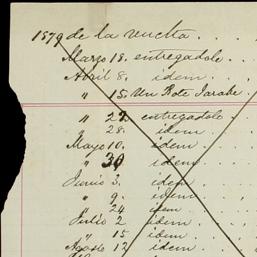 1879 de la vuelta . . .
Marzo 18. entregadole . . .
Abril 8. idem . . .
" 15. Un Bote Jarabe .
" 22 entregadole . .
" 28. idem . .
Mayo 10. idem . .
" 30 idem . .
Junio 3. idem . .
" 9. idem . .
" 24 idem . .
Julio 2 idem . .
" 15 idem . .
Agosto 12 idem . .